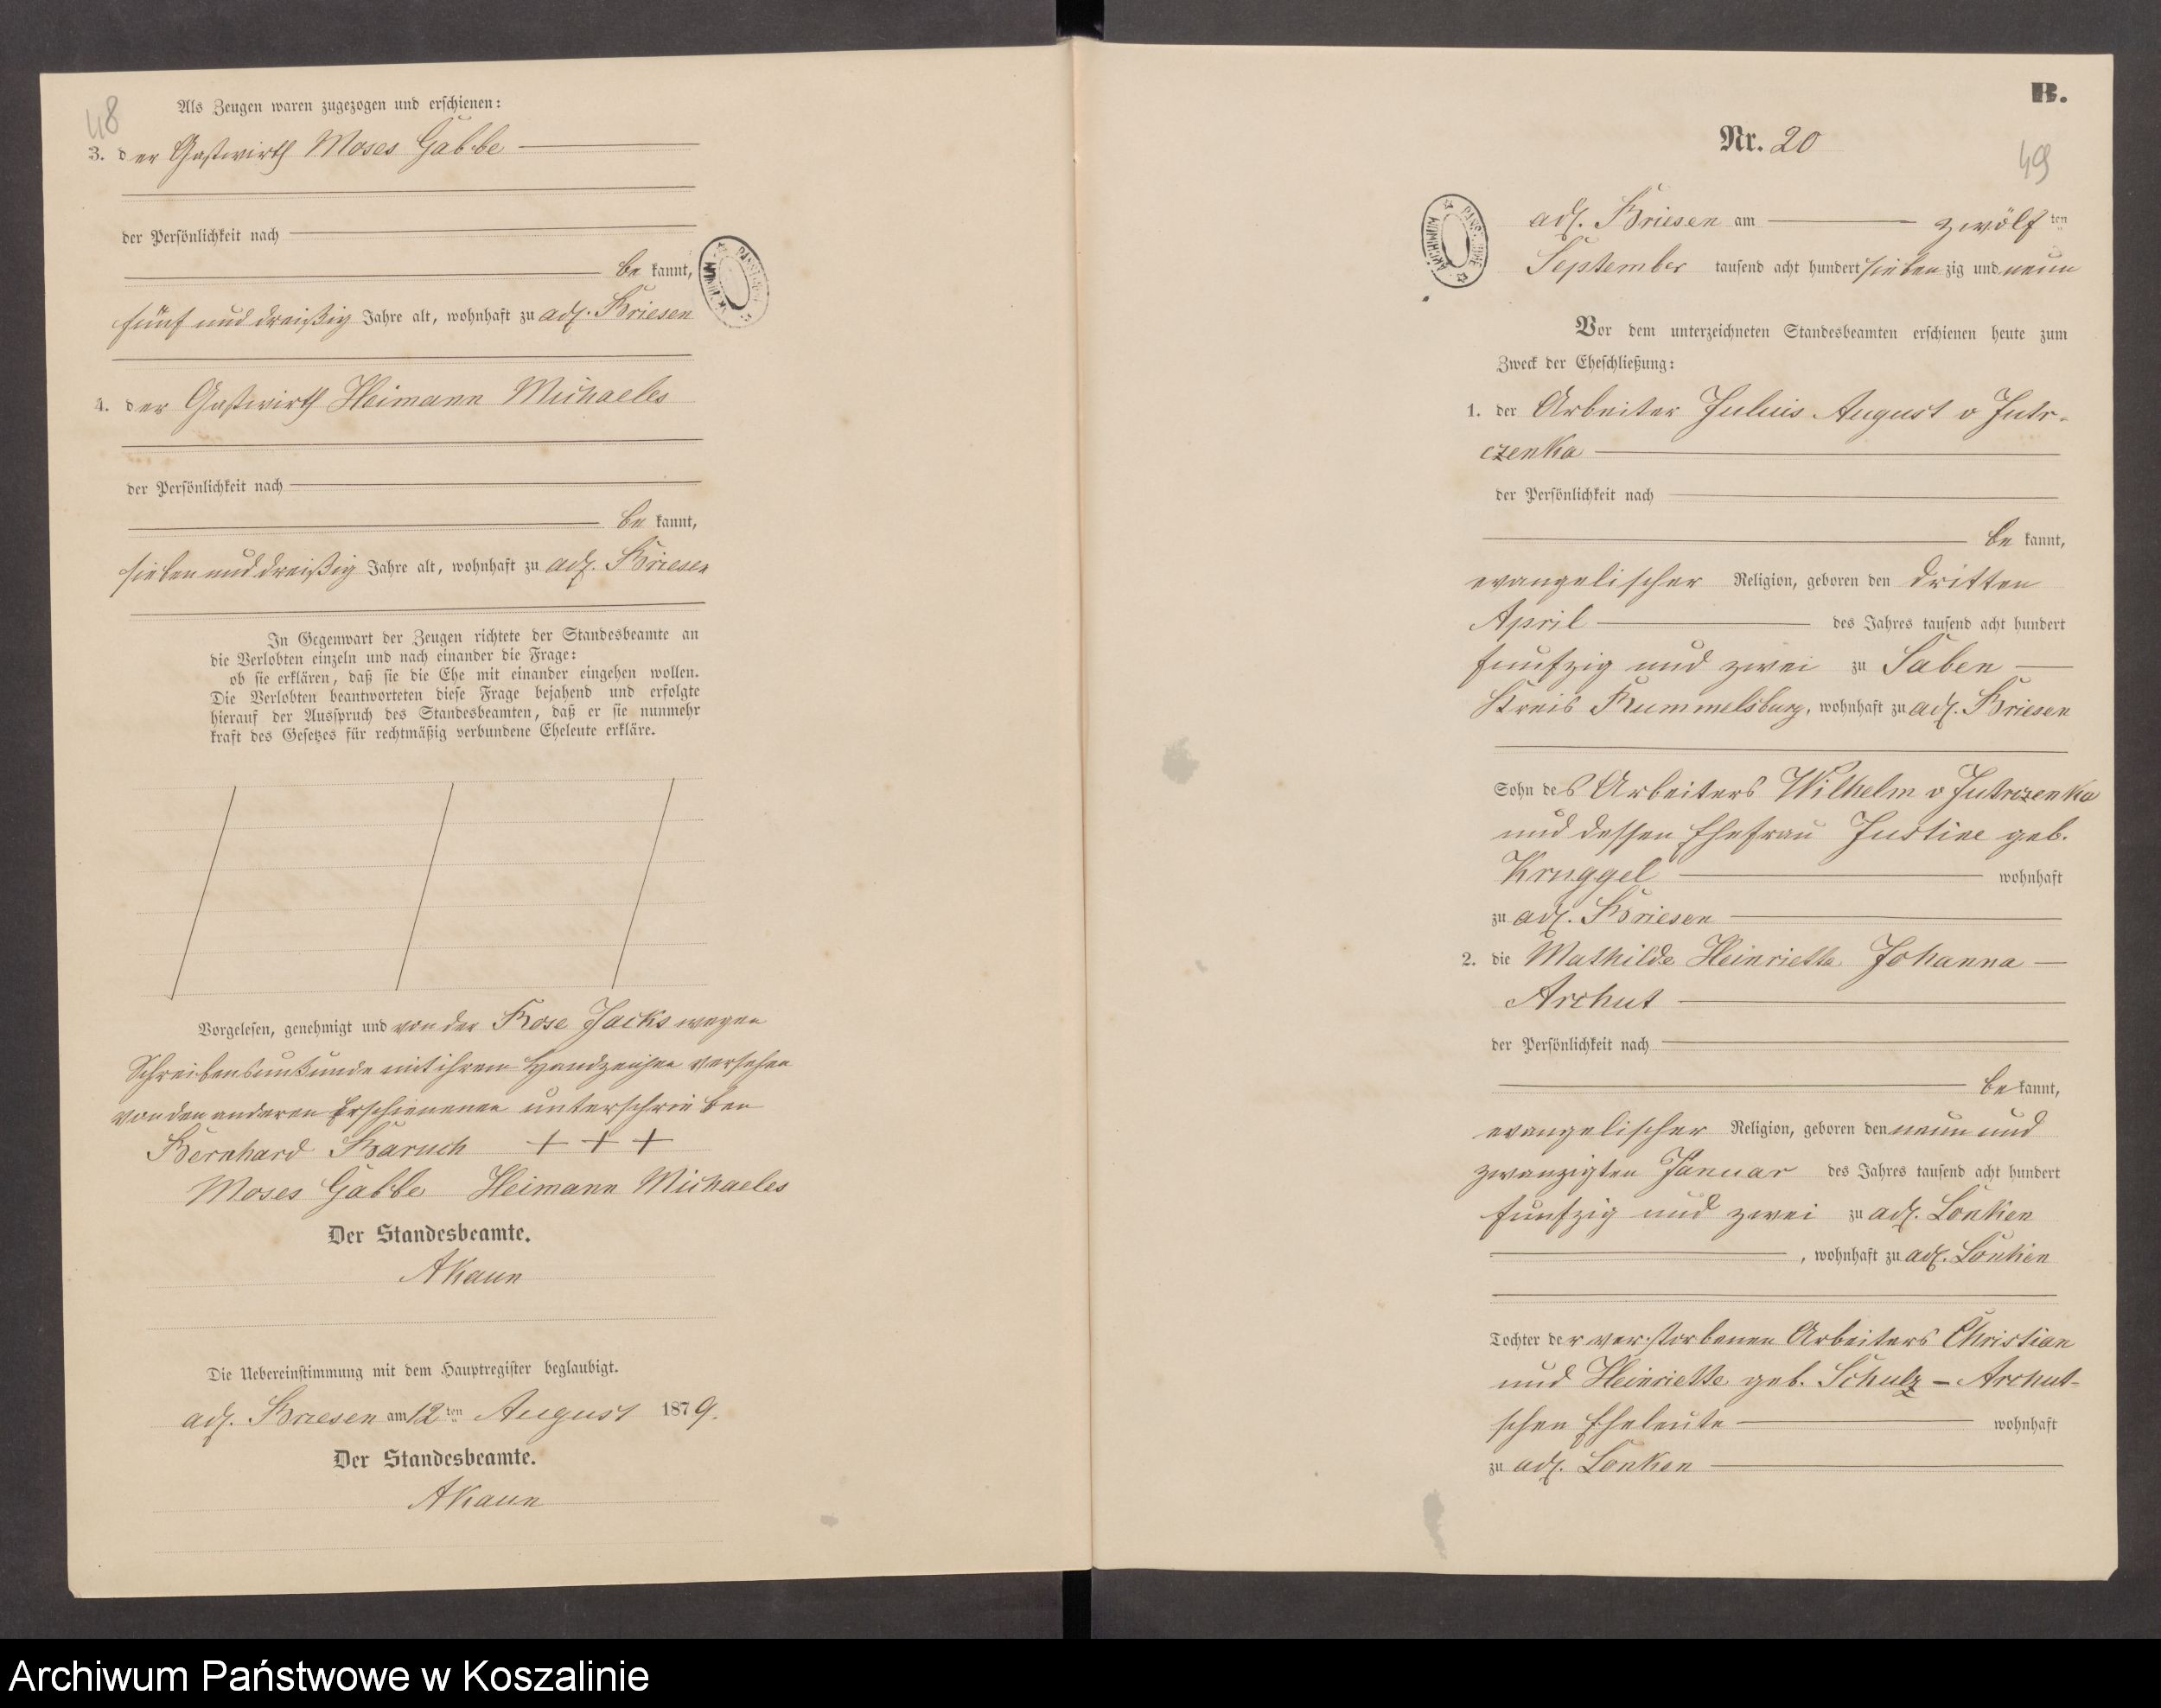 48
Als Zeugen waren zugezogen und erschienen:
3. der Gastwirth Moses Gabbe
der Persönlichkeit nach
be kannt,
fünf und dreißig Jahre alt, wohnhaft zu adl. Briesen
4. der Gastwirth Heimann Michaeles
der Persönlichkeit nach
be kannt,
sieben und dreißig Jahre alt, wohnhaft zu adl. Briesen
In Gegenwart der Zeugen richtete der Standesbeamte an
die Verlobten einzeln und nach einander die Frage:
ob sie erklären, daß sie die Ehe mit einander eingehen wollen.
Die Verlobten beantworteten diese Frage bejahend und erfolgte
hierauf der Ausspruch des Standesbeamten, daß er sie nunmehr
kraft des Gesetzes für rechtmäßig verbundene Eheleute erkläre.
Vorgelesen, genehmigt und von der Rose Jacks wegen
Schreibensunkunde mit ihrem Handzeichen versehen
von den anderen Erschienenen unterschrieben
Bernhard Baruch + + +
Moses Gabbe Heimann Michaeles
Der Standesbeamte.
AKaun
Die Uebereinstimmung mit dem Hauptregister beglaubigt.
adl. Briesen am 12ten August 1879.
Der Standesbeamte.
AKaun
B.
Nr. 20
49
adl. Briesen am zwölf ten
September tausend acht hundert siebenzig und neun
Vor dem unterzeichneten Standesbeamten erschienen heute zum
Zweck der Eheschließung:
1. der Arbeiter Julius August v Jutr-
czenka
der Persönlichkeit nach
be kannt,
evangelischer Religion, geboren den dritten
April des Jahres tausend acht hundert
funfzig und zwei zu Saben
Kreis Rummelsburg, wohnhaft zu adl. Briesen
Sohn des Arbeiters Wilhelm v Jutrczenka
und dessen Ehefrau Justine geb.
Kruggel wohnhaft
zu adl. Briesen
2. die Mathilde Heinriette Johanna
Archut
der Persönlichkeit nach
be kannt,
evangelischer Religion, geboren den neun und
zwanzigten Januar des Jahres tausend acht hundert
funfzig und zwei zu adl. Lonken
, wohnhaft zu adl. Lonken
Tochter der verstorbenen Arbeiters Christian
und Heinriette geb. Schulz - Archut-
schen Eheleute wohnhaft
zu adl. Lonken
Archiwum Państwowe w Koszalinie